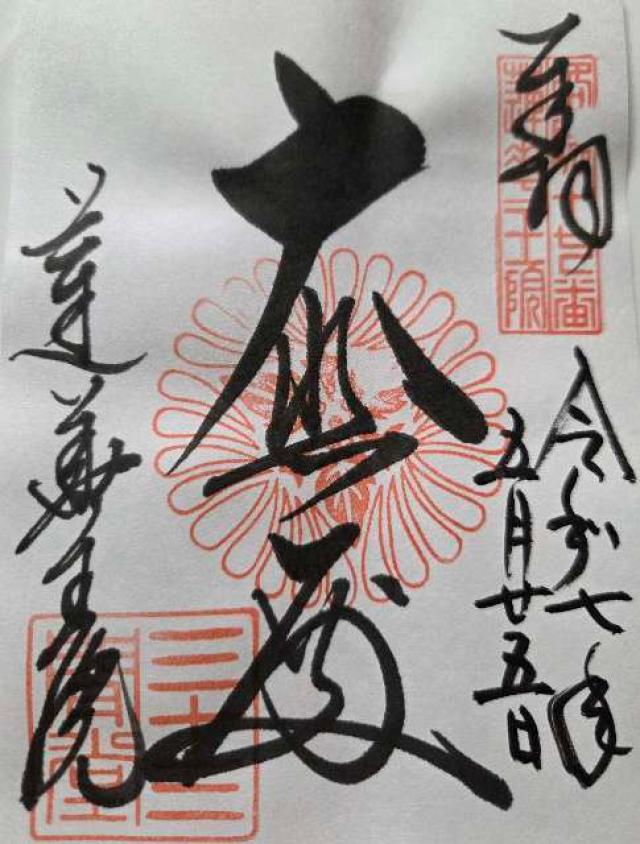 奉拝
令和七年
五月廿五日
大悲殿
蓮華王院
三十三
間堂